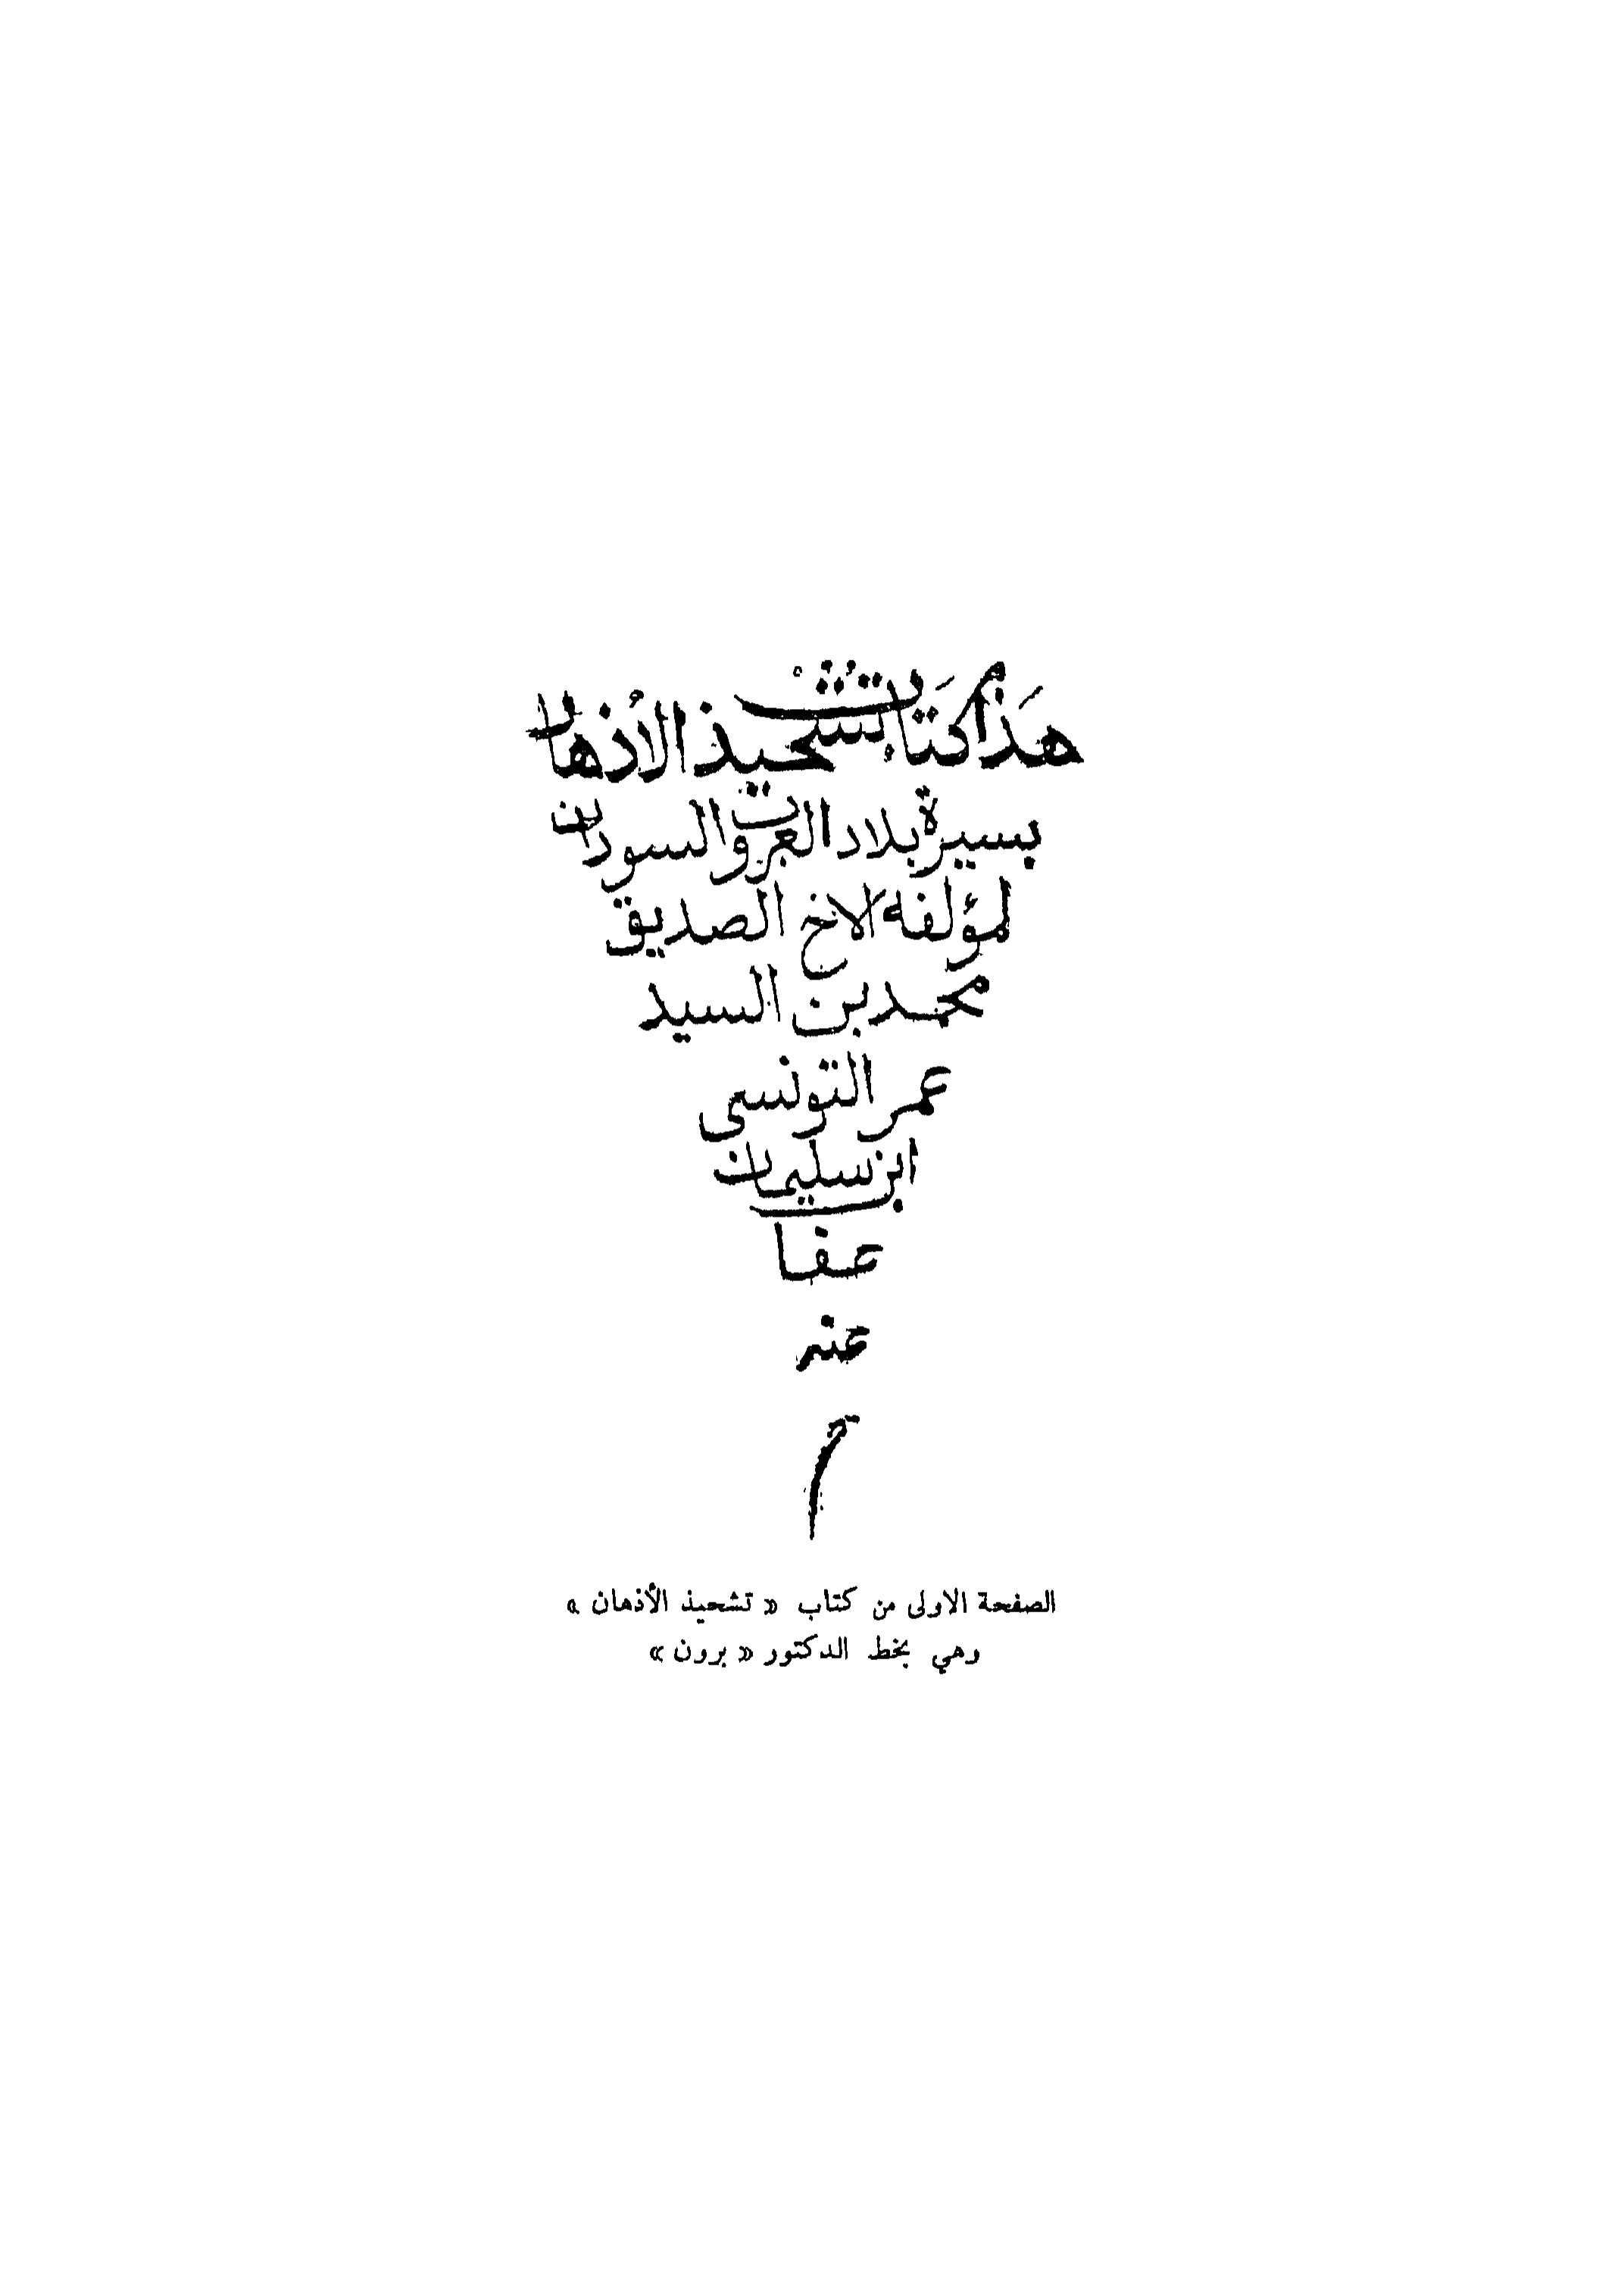 هَذَا كتَاب تشْحيذ الأذهان
بسيرة بلاد العرب والسودان
لمؤلفه الاخ الصديق
محمد بن السيد
عمر التونسى
ابن سليمان
عفا
عنه
م
الصفحة الاولى من كتاب « تشحيذ الأذهان »
وهي بخط الدكتور « برون »